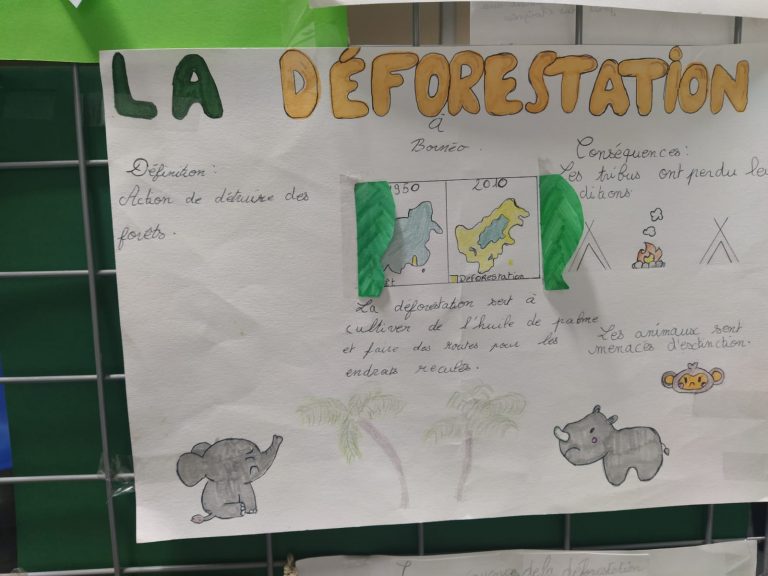 LA DÉFORESTATION
à
Bornéo.
Définition:
Action de détruire des
forêts.
1950 2010
DÉFORESTATION
La déforestation sert à
cultiver de l'huile de palme
et faire des routes pour les
endroits reculés.
Conséquences:
Les tribus ont perdu
Les animaux sont
menacés d'extinction.
de la déforestation